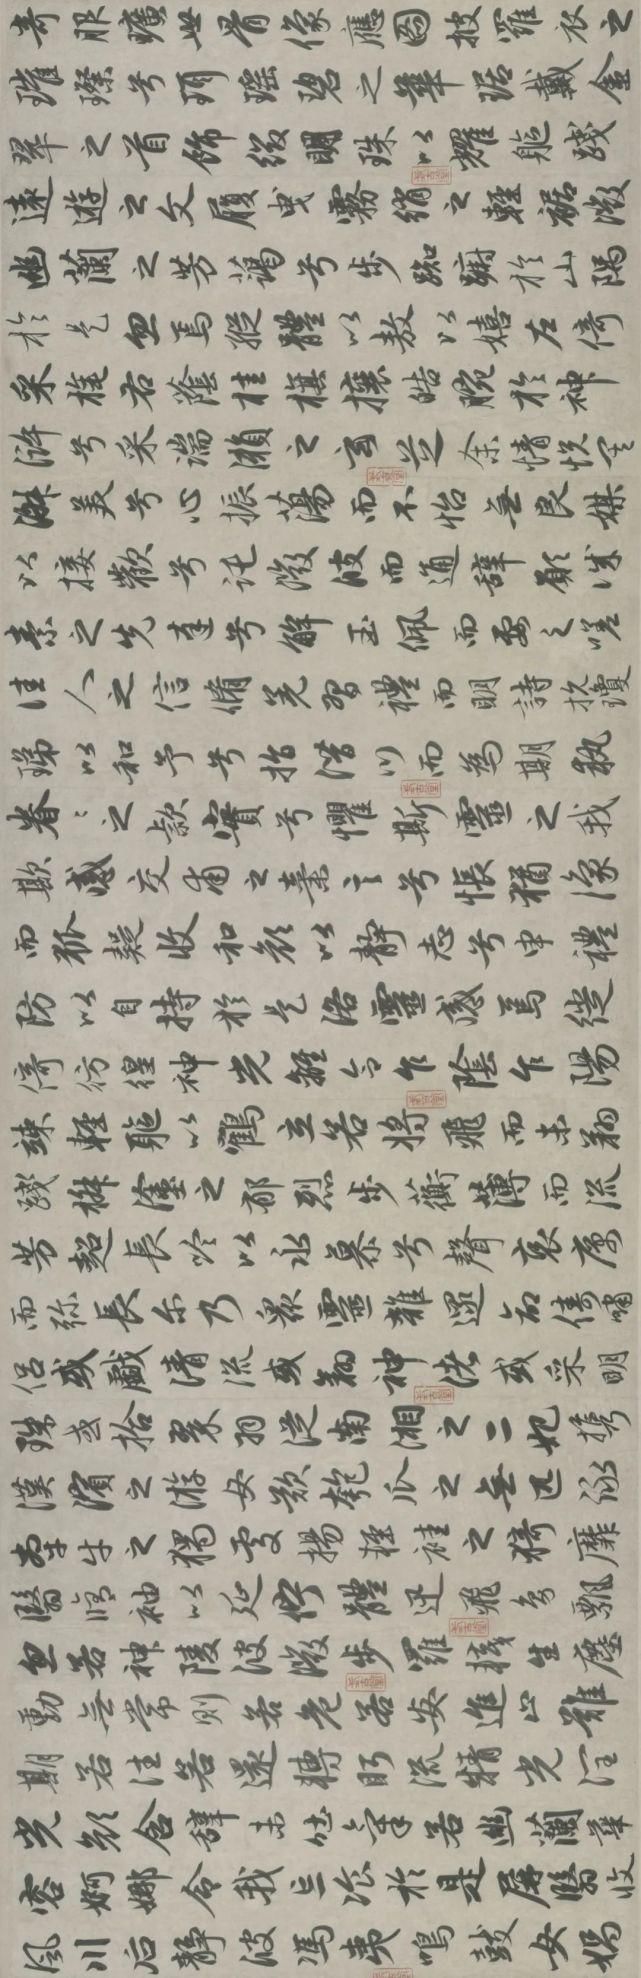 奇服曠世骨像應圖披羅衣之
璀璨兮珥瑤碧之華琚戴金
翠之首飾綴明珠以耀軀踐
遠遊之文履曳霧綃之輕裾微
幽蘭之芳藹兮步踟躕於山隅
於是忽焉縱體以敖以嬉左倚
采旄右蔭桂旗攘皓腕於神
滸兮采湍瀨之玄芝余情悅其
淑美兮心振蕩而不怡無良媒
以接歡兮託微波而通辭願誠
素之先達兮解玉佩而要之嗟
佳人之信脩羌習禮而明詩抗瓊
珶以和予兮指潛川而為期執
眷眷之款實兮懼斯靈之我
欺感交甫之棄言兮悵猶豫
而狐疑收和顏以靜志兮申禮
防以自持於是洛靈感焉徙
倚彷徨神光離合乍陰乍陽
竦輕軀以鶴立若將飛而未翔
踐椒塗之郁烈步蘅薄而流
芳超長吟以永慕兮聲哀厲
而彌長爾乃衆靈雜遝命儔嘯
侶或戲清流或翔神渚或采明
珠或拾翠羽從南湘之二妃攜
漢濱之游女歎匏瓜之無匹詠
牽牛之獨處揚輕袿之猗靡
翳脩袖以延佇體迅飛鳧飄
忽若神陵波微步羅襪生塵
動無常則若危若安進止難
期若往若還轉眄流精光
顏含辭未吐氣若幽蘭華
容婀娜令我忘飡於是屏翳收
風川后靜波馮夷鳴鼓女媧